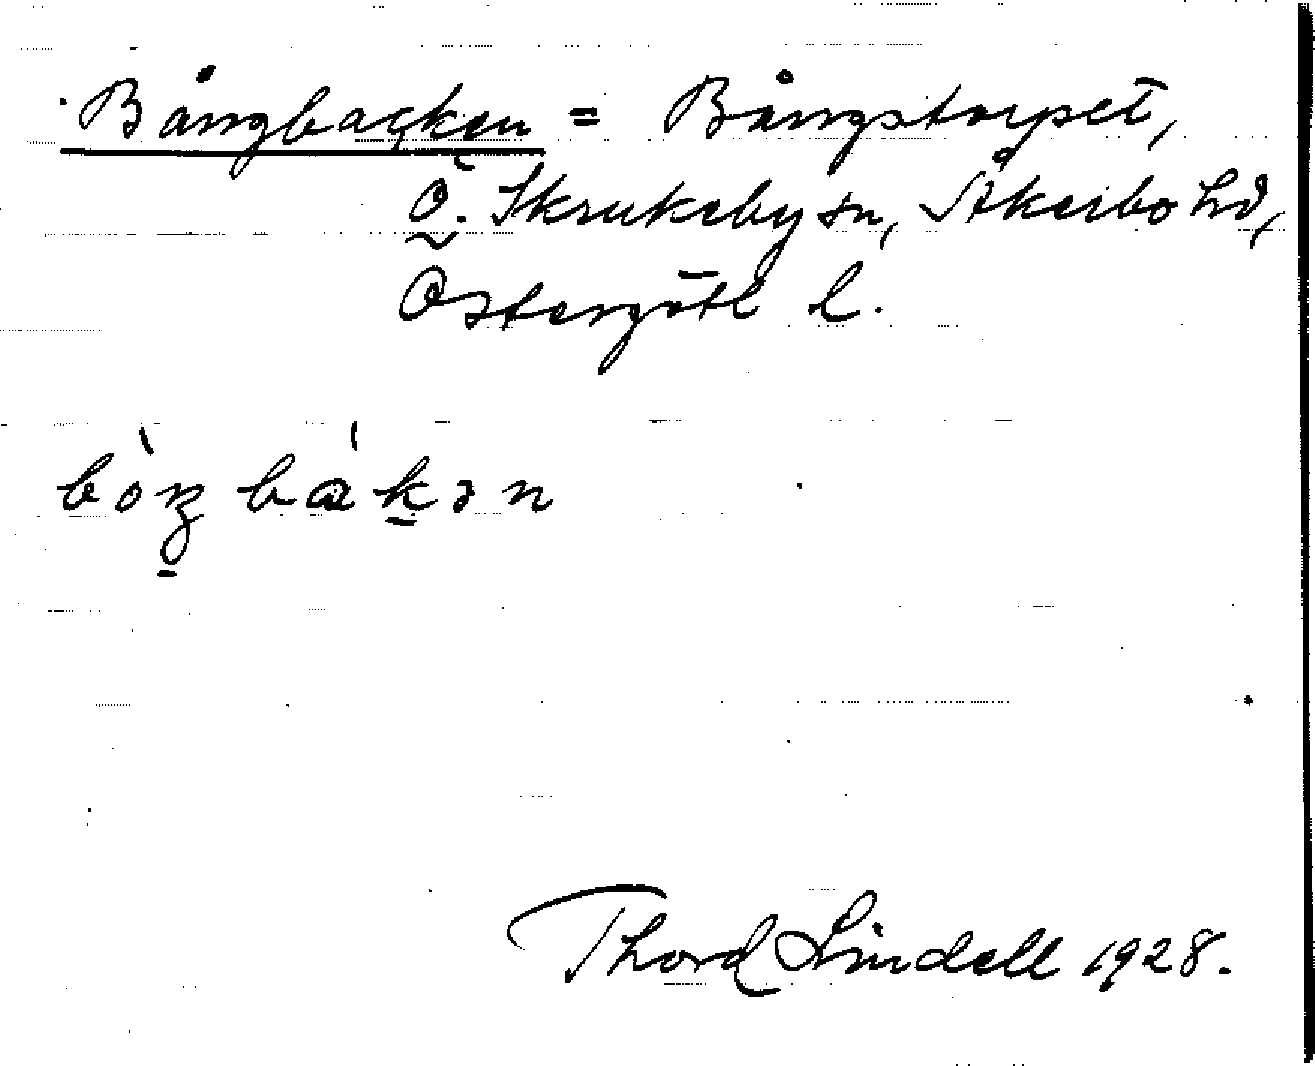 Bångbacken = Bångstorpet,
Ö. Skrukeby sn, Åkerbo hd,
Östergötl l.
bòŋ bákən
Thord Lindell 1928.